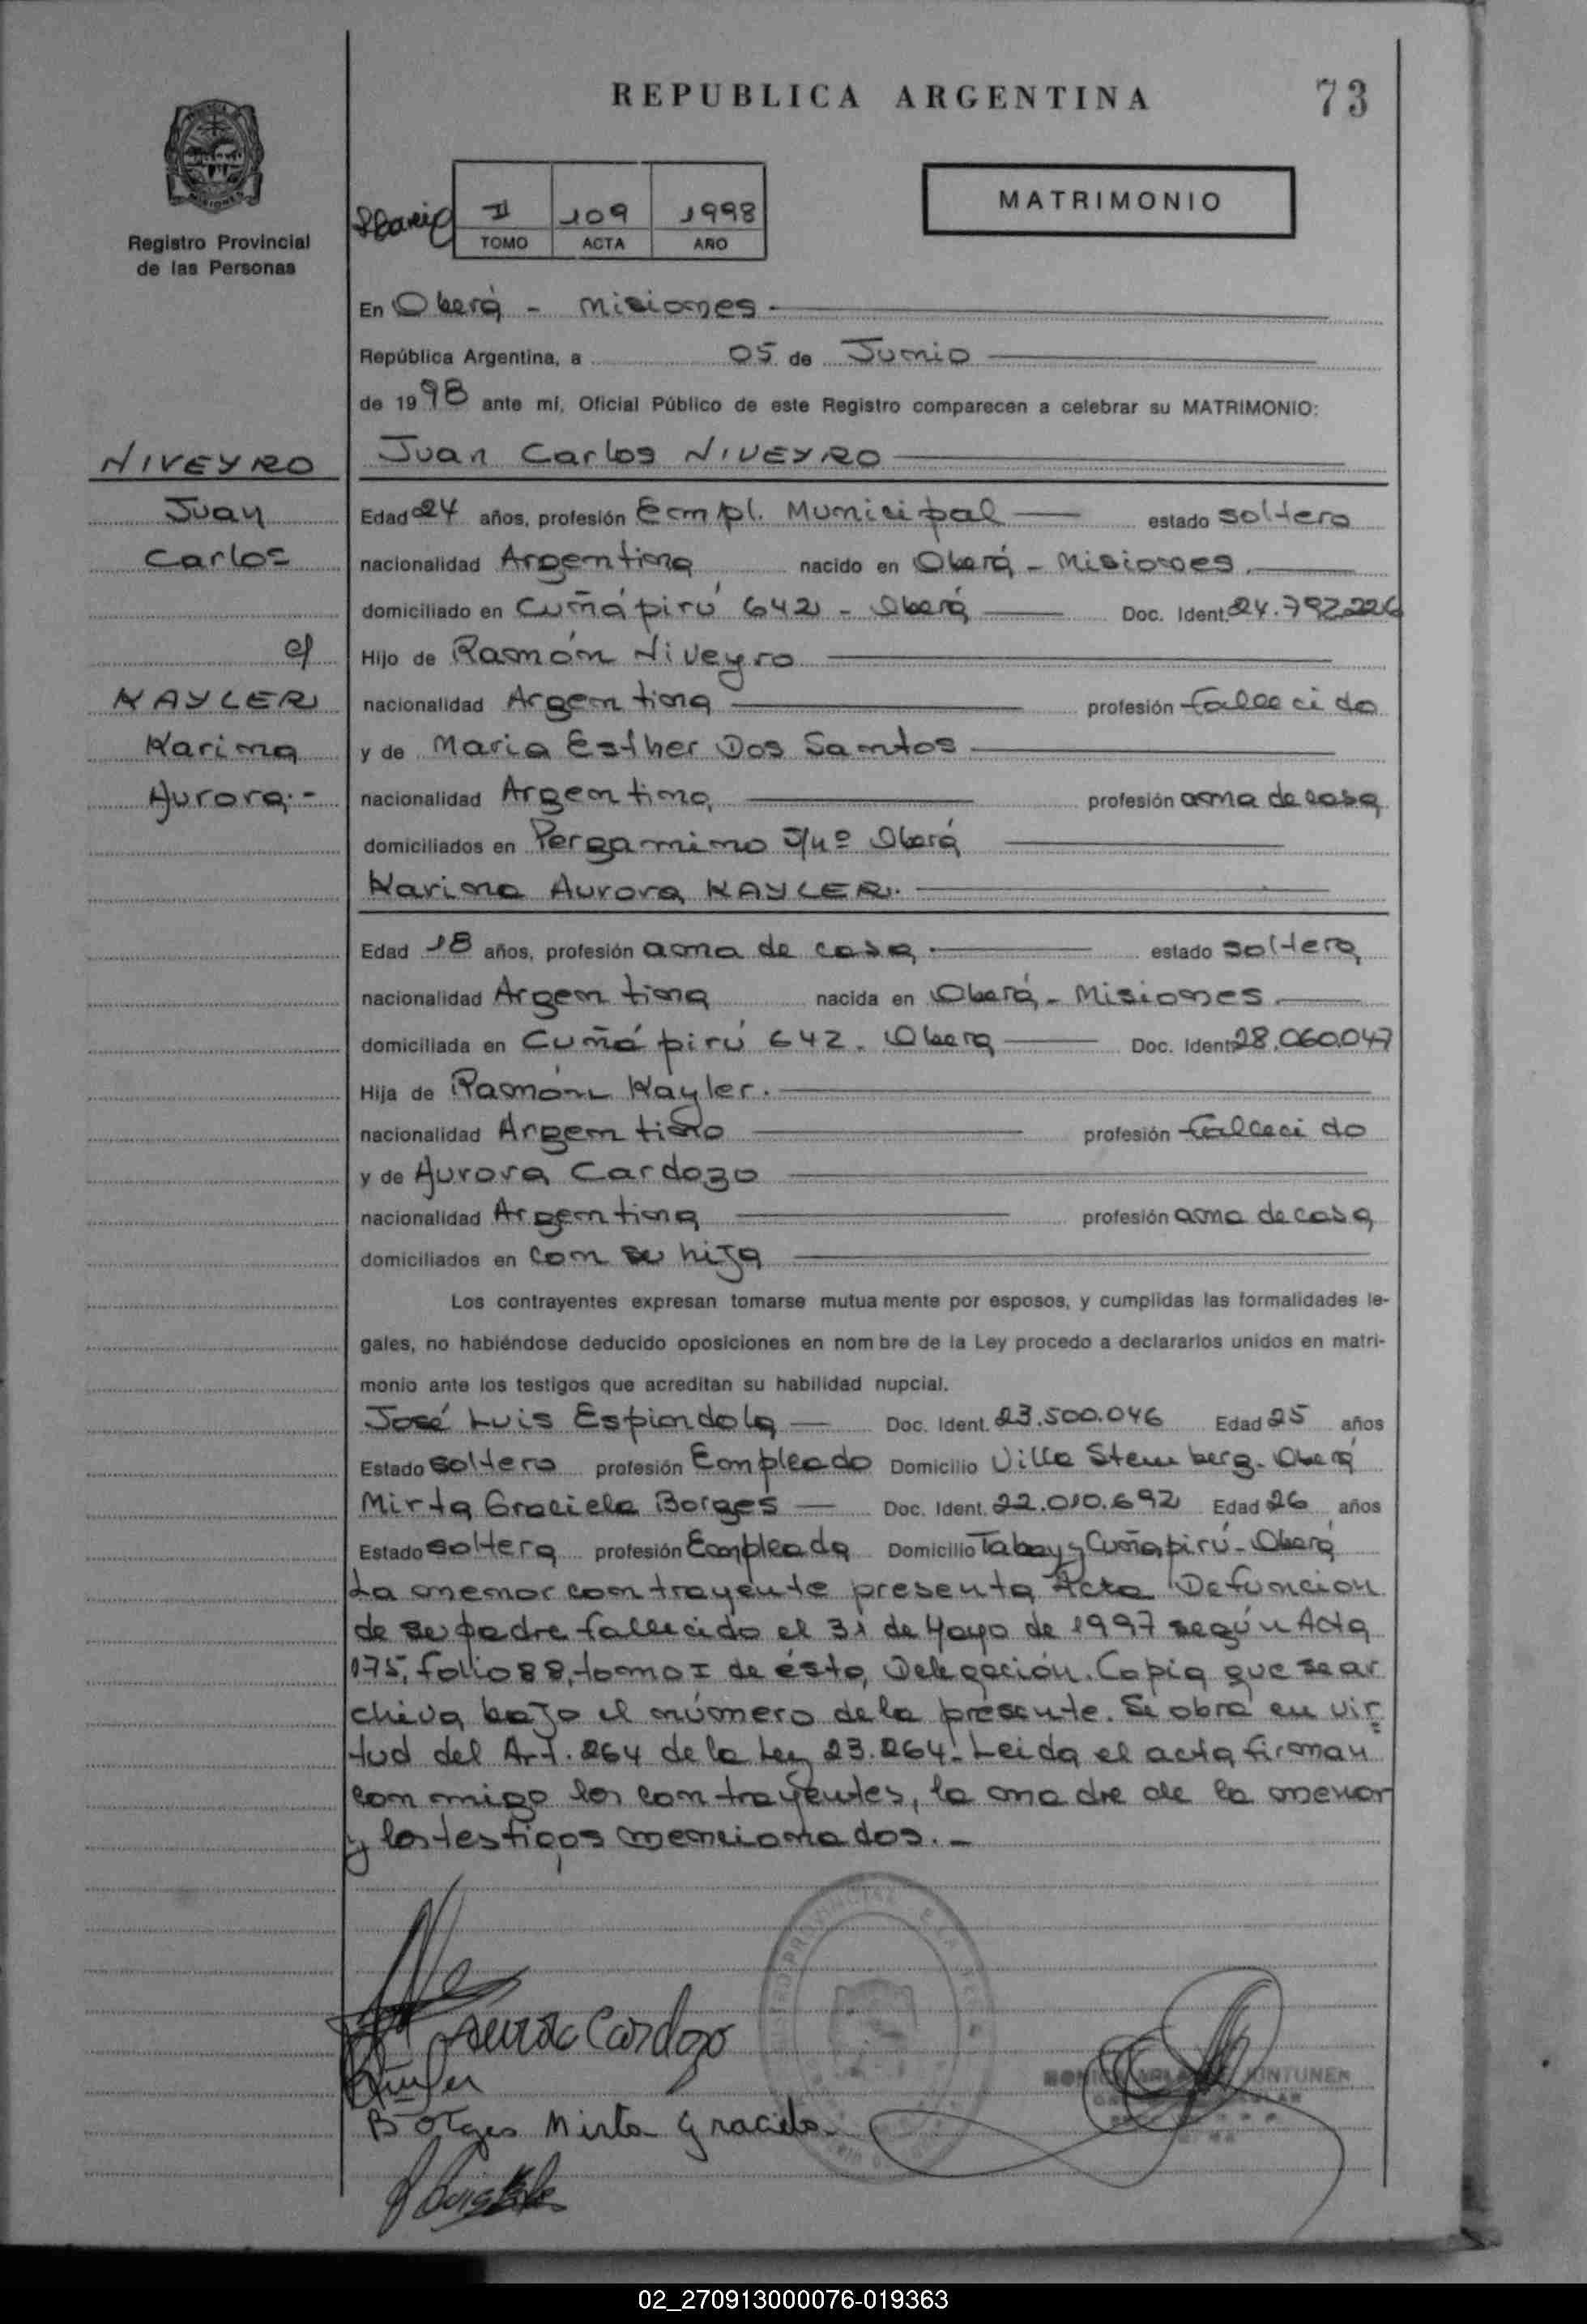 REPUBLICA ARGENTINA
73
MATRIMONIO
II 109 1998
TOMO ACTA AÑO
Registro Provincial
de las Personas
En Oberá - Misiones.
República Argentina, a 05 de Junio
de 1998 ante mí, Oficial Público de este Registro comparecen a celebrar su MATRIMONIO:
NIVEYRO
Juan
Carlos
c/
KAYLER
Karina
Aurora.-
Juan Carlos NIVEYRO
Edad 24 años, profesión Empl. Municipal estado soltero
nacionalidad Argentina nacido en Oberá - Misiones.
domiciliado en Cuñápirú 642 - Oberá Doc. Ident. 24.792.226
Hijo de Ramón Niveyro
nacionalidad Argentina profesión fallecido
y de Maria Esther Dos Santos
nacionalidad Argentina, profesión ama de casa
domiciliados en Pergamino S/Nº Oberá
Karina Aurora KAYLER.
Edad 18 años, profesión ama de casa. estado soltera
nacionalidad Argentina nacida en Oberá - Misiones.
domiciliada en Cuñápirú 642. Obera Doc. Ident. 28.060.047
Hija de Ramón Kayler.
nacionalidad Argentino profesión fallecido
y de Aurora Cardozo
nacionalidad Argentina profesión ama de casa
domiciliados en con su hija
Los contrayentes expresan tomarse mutua mente por esposos, y cumplidas las formalidades le-
gales, no habiéndose deducido oposiciones en nom bre de la Ley procedo a declararlos unidos en matri-
monio ante los testigos que acreditan su habilidad nupcial.
José Luis Espindola Doc. Ident. 23.500.046 Edad 25 años
Estado soltero profesión Empleado Domicilio Villa Stemberg. Oberá
Mirta Graciela Borges Doc. Ident. 22.010.692 Edad 26 años
Estado soltera profesión Empleada Domicilio Tabay y Cuñapirú - Oberá
La menor contrayente presenta Acta Defuncion
de su padre fallecido el 31 de Mayo de 1997 según Acta
175, folio 88, tomo I de ésta, Delegación. Copia que se ar
chiva bajo el número de la presente. Se obra en vir
tud del Art. 264 de la Ley 23.264. Leida el acta firman
conmigo los contrayentes, la madre de la menor
y los testigos mencionados. -
Aurora Cardozo
Borges Mirta Graciela
02_270913000076-019363